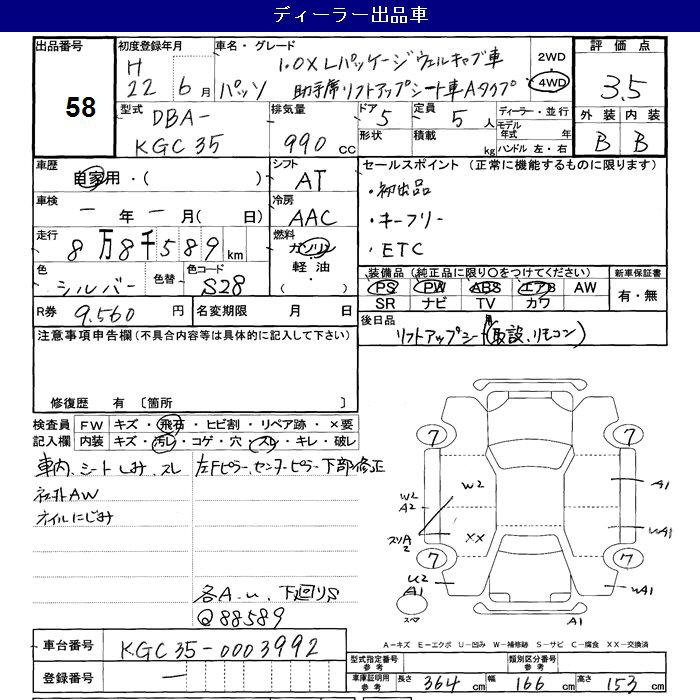 ディーラー出品車
出品番号 58
初度登録年月 H 22年 6月
車名・グレード パッソ 1.0X Lパッケージ ウェルキャブ車
助手席リフトアップシート車Aタイプ
2WD
4WD
評価点 3.5
外装 内装
B B
型式 DBA-
KGC35
排気量 990 cc
ドア 5
定員 5人
形状
積載 kg
ディーラー・並行
モデル年式 年
ハンドル 左・右
車歴 自家用・( )
シフト AT
車検 一年一月( 日)
冷房 AAC
走行 8万8千589 km
燃料 ガソリン
軽油
・( )
色 シルバー
色替
色コード S28
R券 9,560 円
名変期限 月 日
セールスポイント (正常に機能するものに限ります)
・初出品
・キーフリー
・ETC
装備品 (純正品に限り○をつけてください)
PS PW ABS エアB AW
SR ナビ TV カワ
新車保証書
有・無
後日品
リフトアップシート用(取説、リモコン)
注意事項申告欄(不具合内容等は具体的に記入して下さい)
修復歴 有 〔箇所 〕
検査員記入欄
FW キズ・飛石・ヒビ割・リペア跡・×要
内装 キズ・汚レ・コゲ・穴・スレ・キレ・破レ
車内、シートしみ、スレ
左Fピラー、センターピラー下部修正
社外AW
オイルにじみ
各A-u、下廻りS
Q88589
7 7
7 7
W2
A2
W2
XX
スリA2
U2
A1
A1
UA1
UA1
A1
スペア
A-キズ E-エクボ U-凹み W-補修跡 S-サビ C-腐食 XX-交換済
車台番号 KGC35-0003992
登録番号 ー
型式指定番号 参考
類別区分番号 参考
車庫証明用 参考 長さ 364 cm 幅 166 cm 高さ 153 cm